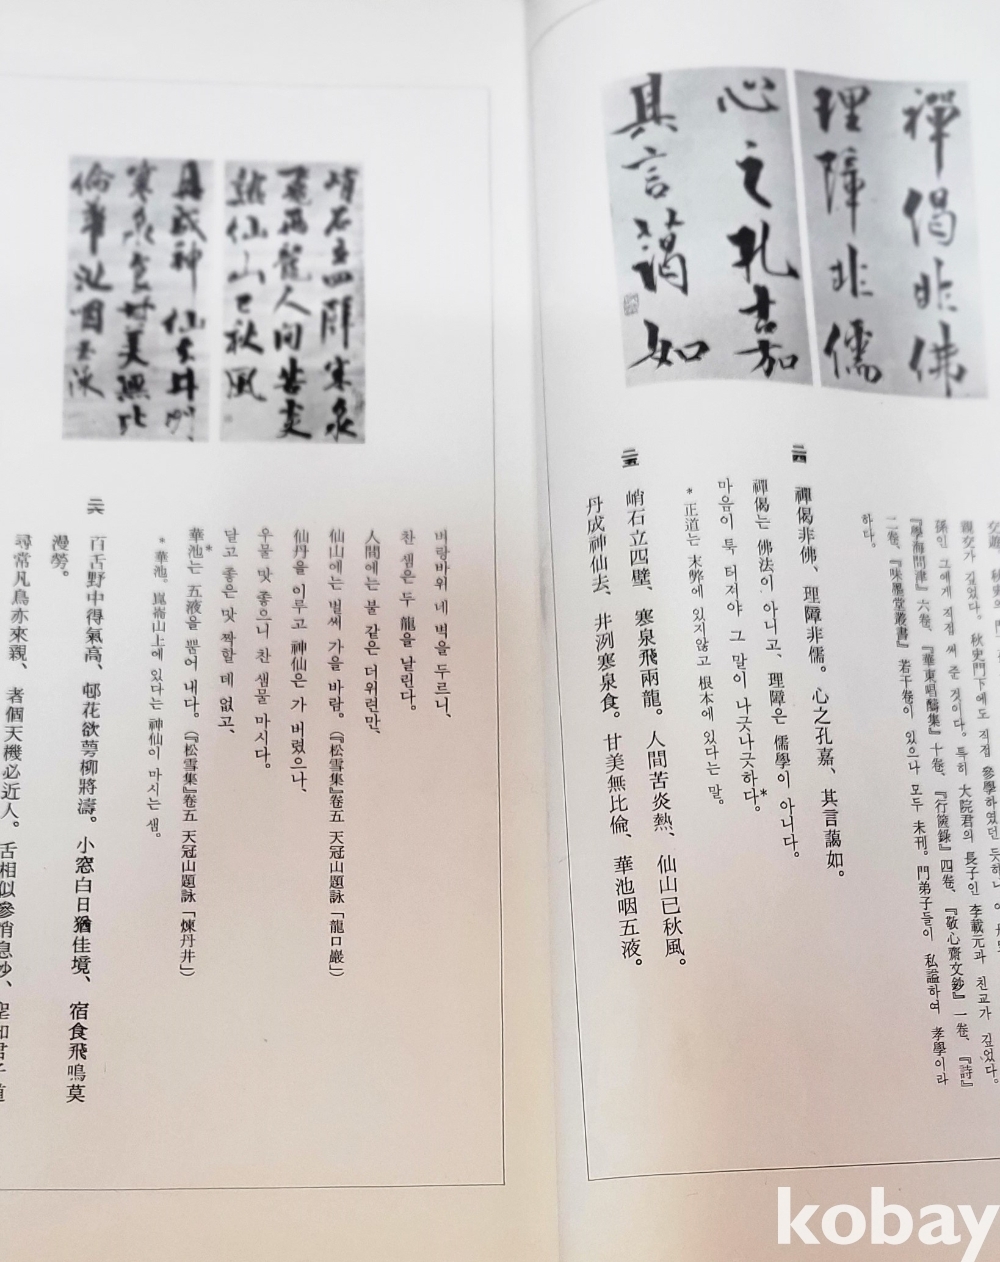 禪偈非佛
理障非儒
心之孔嘉
其言藹如
交遊
親交가 깊었다。秋史門下에도 직접 參學하였던 듯하나
孫인 그에게 직접 써 준 것이다。특히 大院君의 長子인 李載元과 친교가 깊었다。
『學海問津』六卷、『華東唱酬集』十卷、『行篋錄』四卷、『敬心齋文鈔』一卷、『詩』
二卷、『味墨堂叢書』若干卷이 있으나 모두 未刊。門弟子들이 私謚하여 孝學이라
하다。
二四 禪偈非佛、理障非儒。心之孔嘉、其言藹如。
禪偈는 佛法이 아니고、理障은 儒學이 아니다。
마음이 툭 터져야 그 말이 나긋나긋하다。*
* 正道는 末弊에 있지않고 根本에 있다는 말。
二五 峭石立四壁、寒泉飛兩龍。人間苦炎熱、仙山已秋風。
丹成神仙去、井洌寒泉食。甘美無比倫、華池咽五液。
峭石立四壁寒泉
飛兩龍人間苦炎
熱仙山已秋風
丹成神仙去井洌
寒泉食甘美無比
倫華池咽五液
벼랑바위 네 벽을 두르니、
찬 샘은 두 龍을 날린다。
人間에는 불 같은 더위련만、
仙山에는 벌써 가을 바람。(『松雪集』卷五 天冠山題詠「龍口巖」)
仙丹을 이루고 神仙은 가 버렸으나、
우물 맛 좋으니 찬 샘물 마시다。
달고 좋은 맛 짝할 데 없고、
華池*는 五液을 뿜어 내다。(『松雪集』卷五 天冠山題詠「煉丹井」)
* 華池。崑崙山上에 있다는 神仙이 마시는 샘。
二六 百舌野中得氣高、邨花欲萼柳將濤。小窓白日猶佳境、宿食飛鳴莫
漫勞。
尋常凡鳥亦來親、者個天機必近人。舌相似參消息妙、聖知君子道
kobay